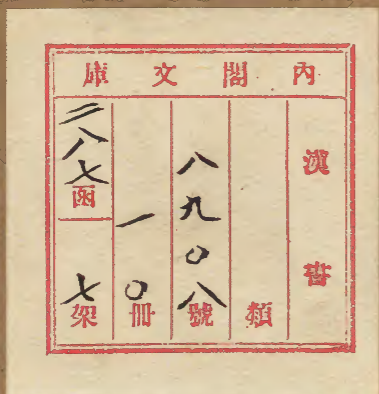 內閣文庫
漢書
類
八九〇八號
一〇冊
二八七函
七架